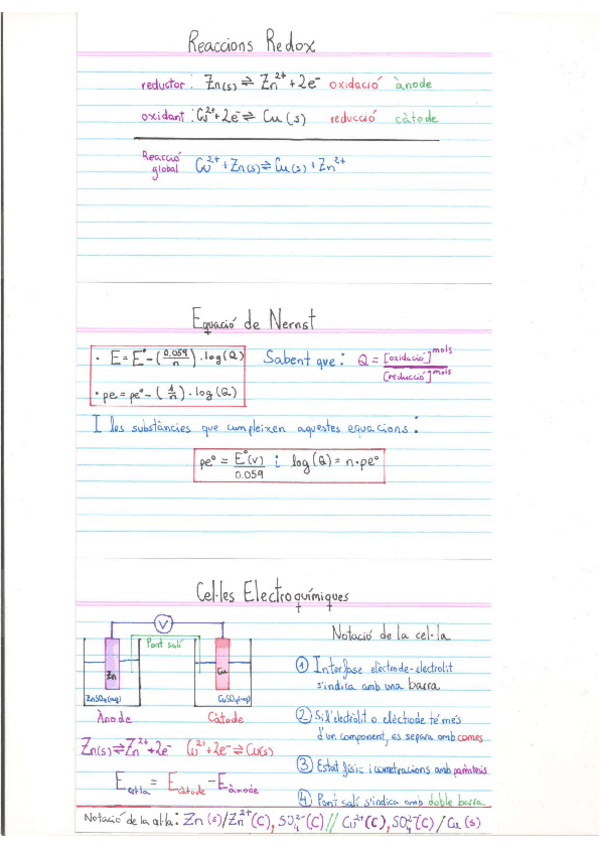 Reaccions Redox
reductor: Zn(s) ⇌ Zn²⁺ + 2e⁻ oxidació ànode
oxidant: Cu²⁺ + 2e⁻ ⇌ Cu(s) reducció càtode
Reacció global Cu²⁺ + Zn(s) ⇌ Cu(s) + Zn²⁺
Equació de Nernst
· E = E° - (0.059/n) · log(Q) Sabent que: Q = [oxidació]^mols / [reducció]^mols
· pe = pe° - (1/n) · log(Q)
I les substàncies que cumpleixen aquestes equacions:
pe° = E°(V)/0.059 i log(Q) = n·pe°
Cel·les Electroquímiques
V
Pont salí
Zn
Cu
ZnSO₄(aq)
CuSO₄(aq)
Ànode
Càtode
Zn(s) ⇌ Zn²⁺ + 2e⁻ Cu²⁺ + 2e⁻ ⇌ Cu(s)
E cel·la = E càtode - E ànode
Notació de la cel·la
① Interfase elèctrode-electròlit
s'indica amb una barra
② Si l'electròlit o elèctrode té més
d'un component, es separa amb comes
③ Estat físic i concentracions amb parèntesis
④ Pont salí s'indica amb doble barra
Notació de la cel·la: Zn(s)/Zn²⁺(C), SO₄²⁻(C)//Cu²⁺(C), SO₄²⁻(C)/Cu(s)